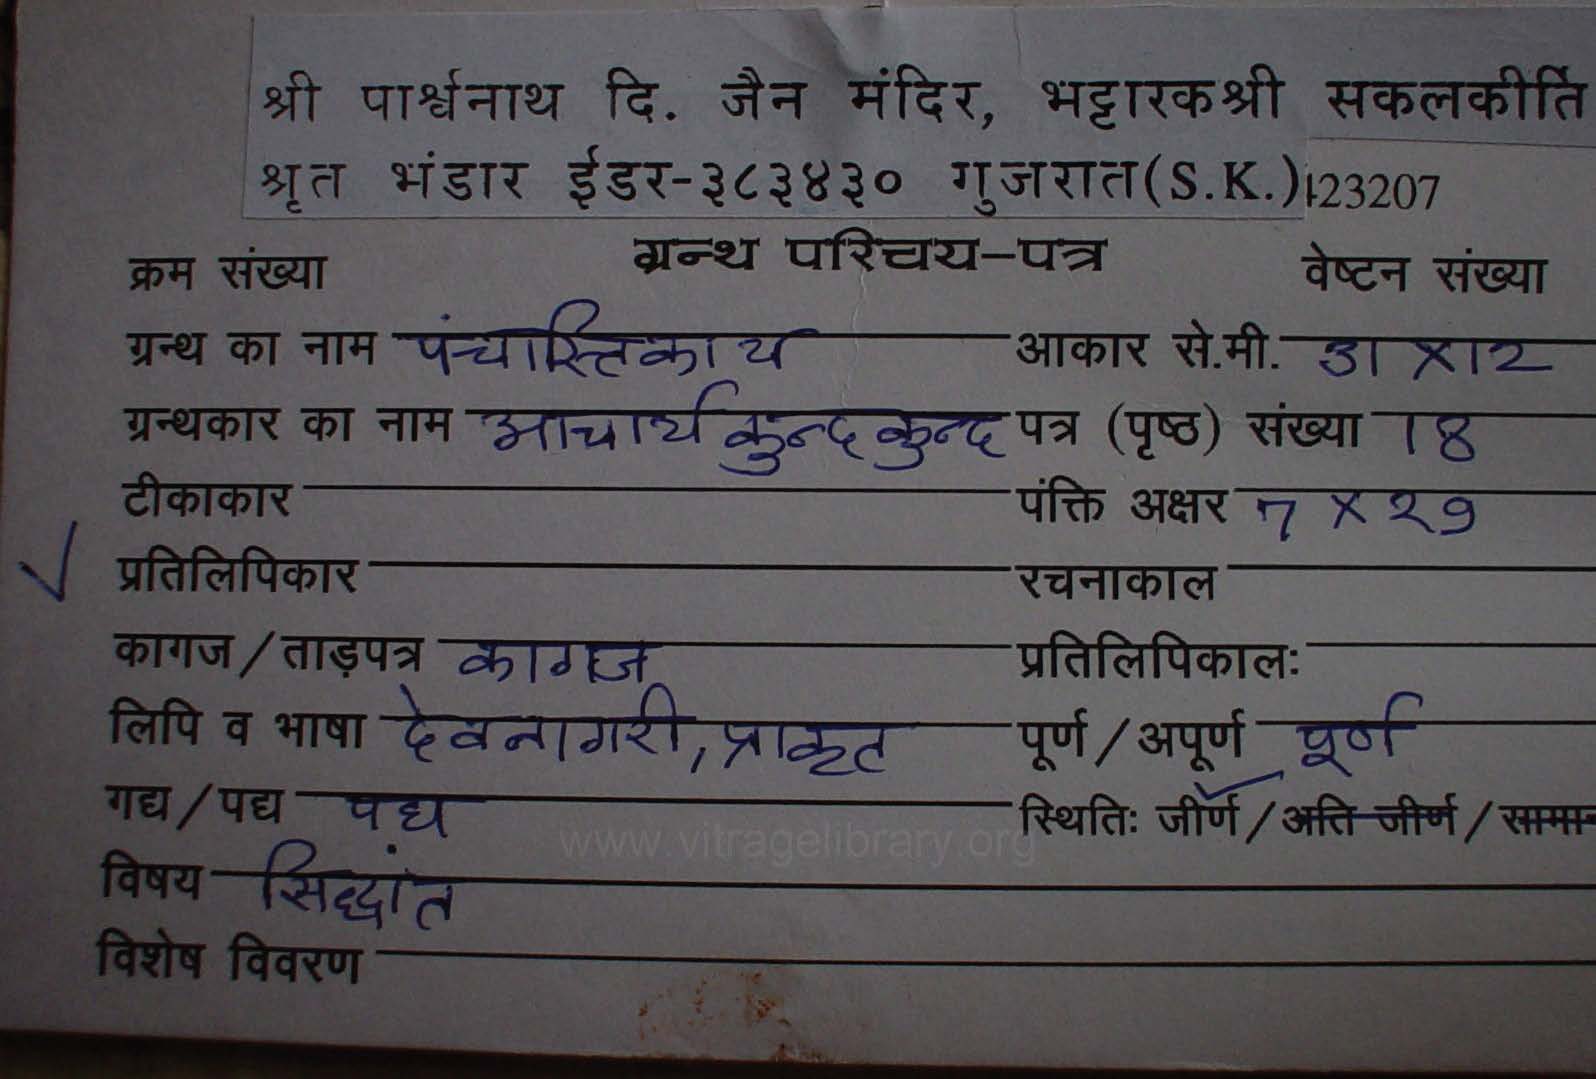 श्री पार्श्वनाथ दि. जैन मंदिर, भट्टारकश्री सकलकीर्ति
श्रृत भंडार ईडर-३८३४३० गुजरात(S.K.) 123207
ग्रन्थ परिचय-पत्र
क्रम संख्या वेष्टन संख्या
ग्रन्थ का नाम पंचास्तिकाय आकार से.मी. 31 X12
ग्रन्थकार का नाम आचार्य कुन्द कुन्द पत्र (पृष्ठ) संख्या 18
टीकाकार पंक्ति अक्षर 7 X 29
प्रतिलिपिकार रचनाकाल
कागज/ताड़पत्र कागज प्रतिलिपिकालः
लिपि व भाषा देवनागरी, प्राकृत पूर्ण/अपूर्ण पूर्ण
गद्य/पद्य पद्य स्थितिः जीर्ण/अति जीर्ण/सामान
www.vitragelibrary.org
विषय सिद्धांत
विशेष विवरण